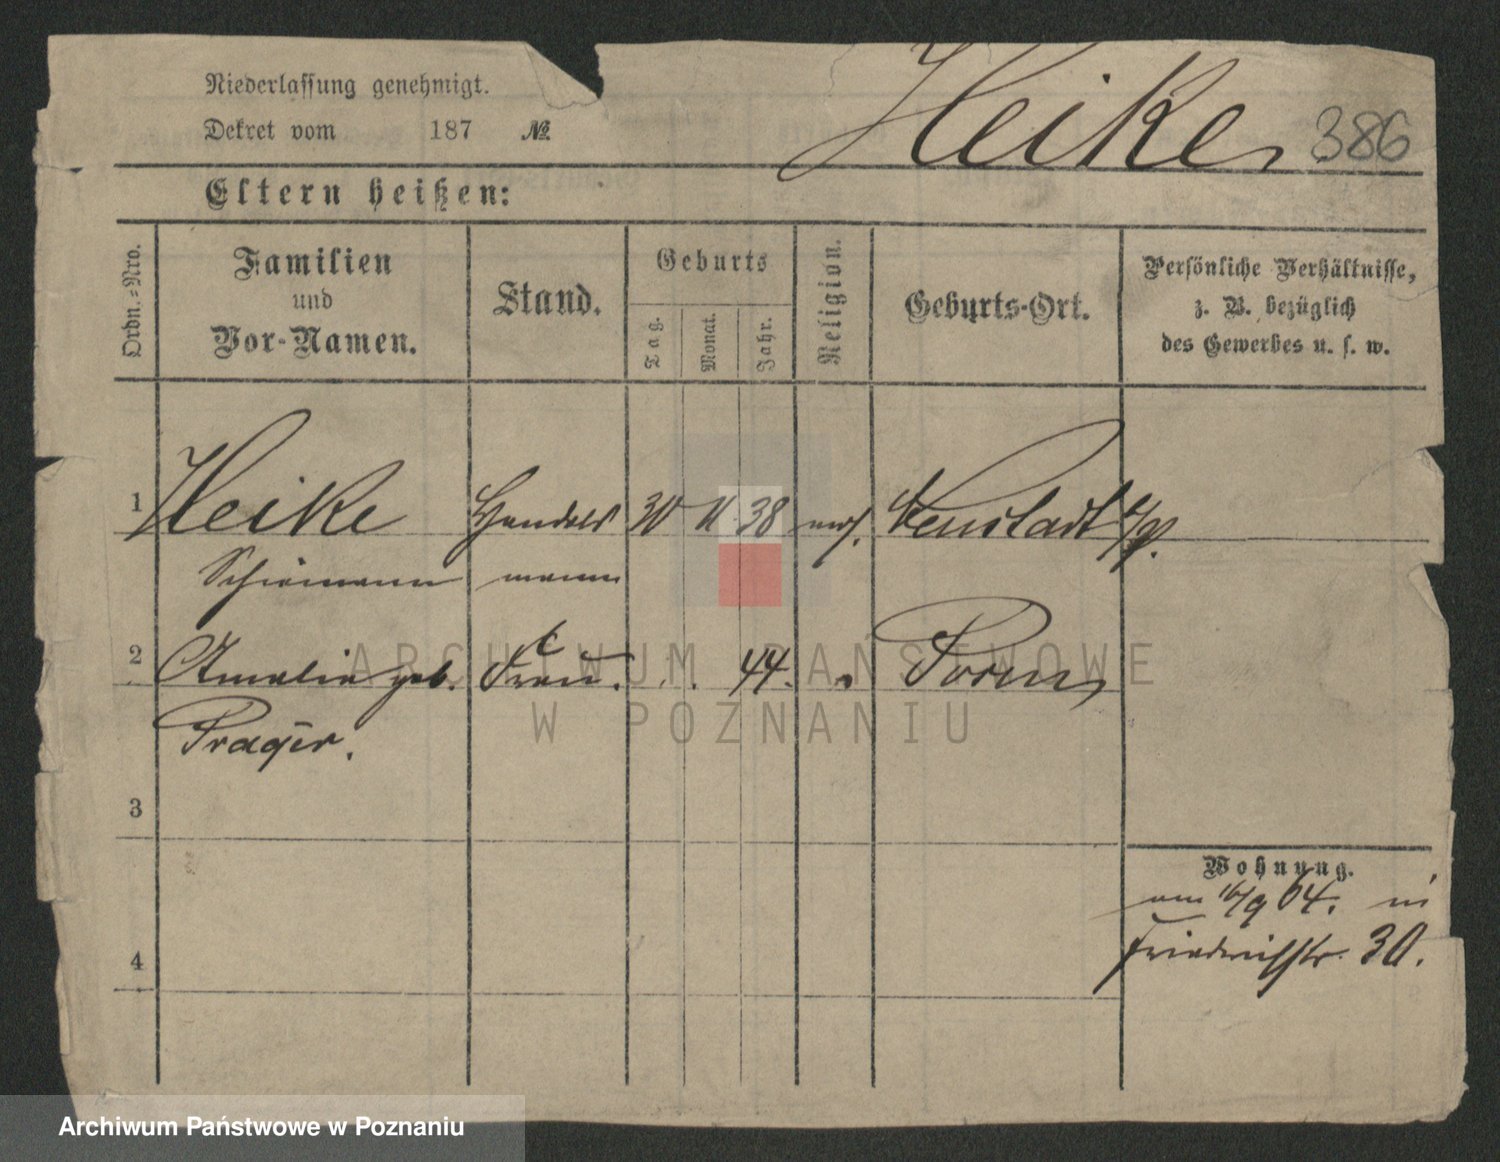 Niederlassung genehmigt.
Dekret vom 187 №
Heike, 386
Eltern heißen:
Ordn.=Nro.
Familien
und
Vor-Namen.
Stand.
Geburts
Tag.
Monat.
Jahr.
Religion.
Geburts-Ort.
Persönliche Verhältnisse,
z. B. bezüglich
des Gewerbes u. s. w.
1 Heike Handels 30 11 38 Neustadt
mann
2 Amalie geb. Frau. 44. Posen,
Prager.
3
Wohnung.
am 16/9 04. in
Friedrichstr. 30.
4
ARCHIWUM PAŃSTWOWE
W POZNANIU
Archiwum Państwowe w Poznaniu